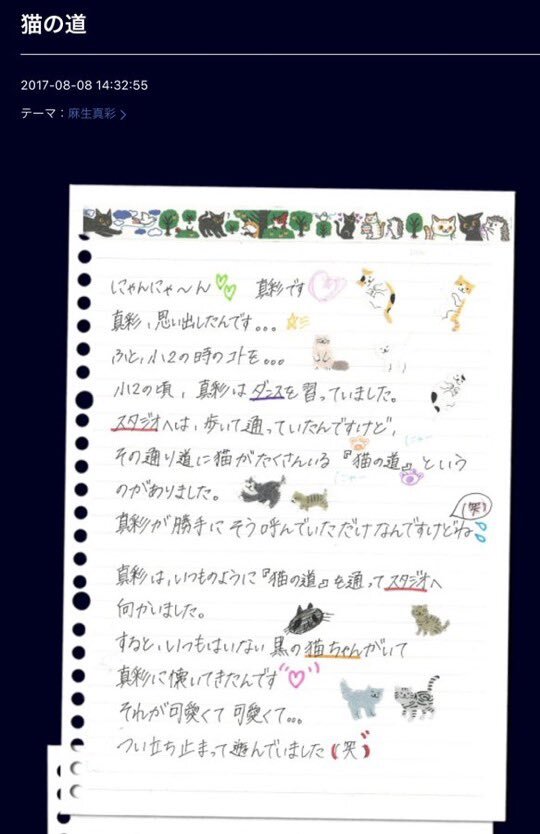 猫の道
2017-08-08 14:32:55
テーマ：麻生真彩
にゃんにゃ〜ん 真彩です
真彩、思い出したんです。。。
ふと、小2の時のコトを。。。
小2の頃、真彩はダンスを習っていました。
スタジオへは、歩いて通っていたんですけど、
にゃー
その通り道に猫がたくさんいる『猫の道』という
にゃー
のがありました。
(笑)
真彩が勝手にそう呼んでいただけなんですけどね
真彩は、いつものように『猫の道』を通ってスタジオへ
向かいました。
すると、いつもはいない黒の猫ちゃんがいて
真彩に懐いてきたんです
それが可愛くて可愛くて。。。
つい立ち止まって遊んでいました(笑)